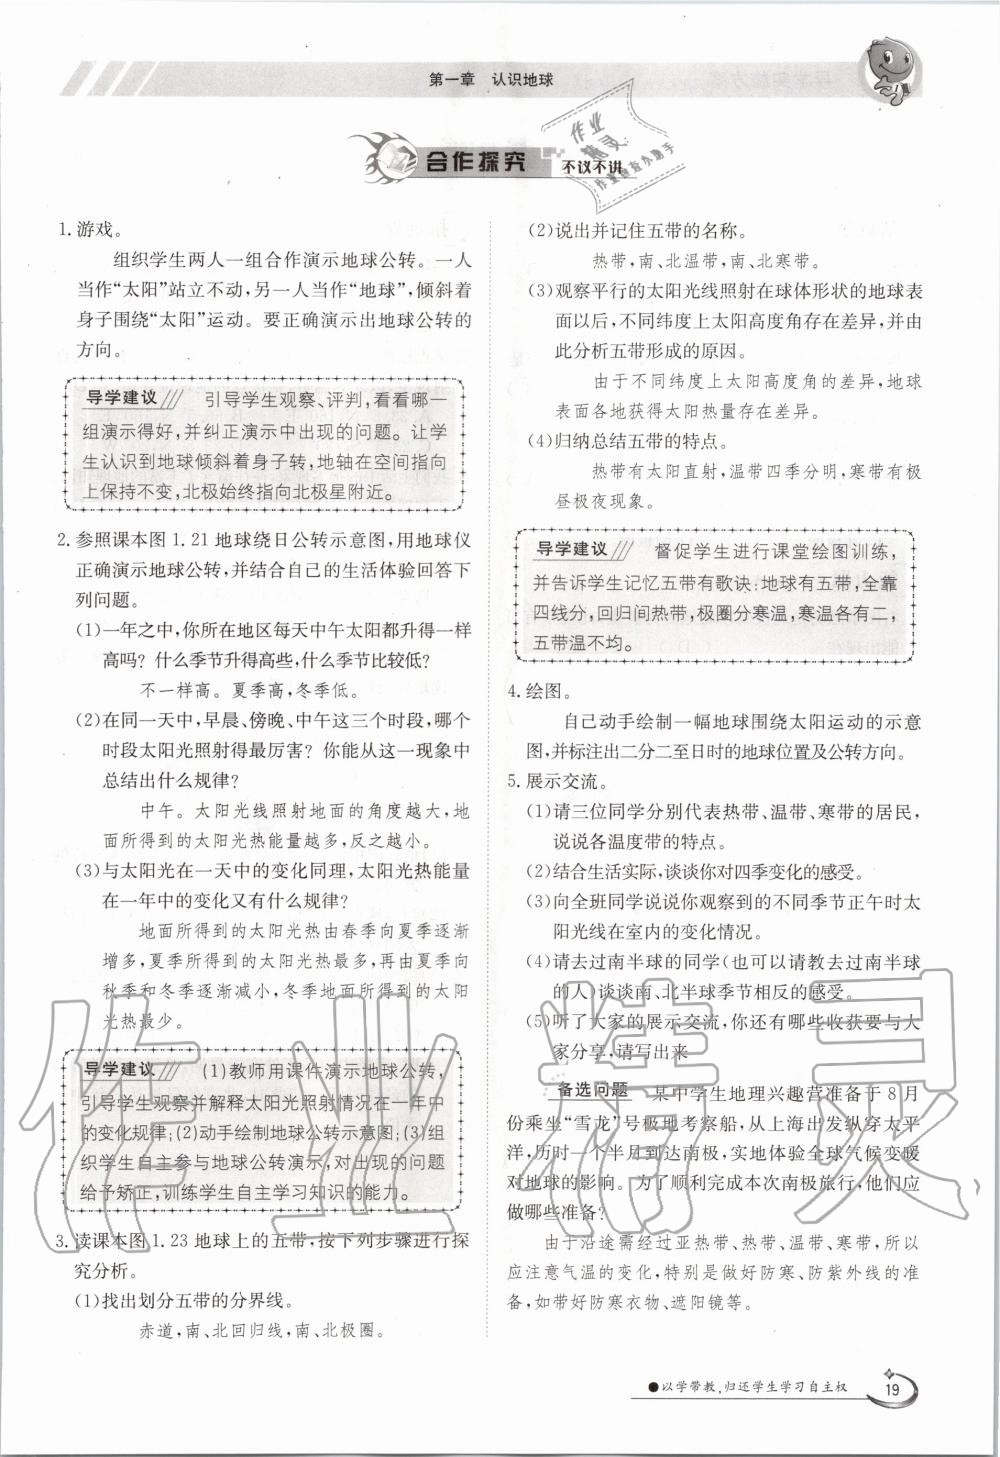 第一章 认识地球
合作探究 不议不讲
作业
精灵
1. 游戏。
组织学生两人一组合作演示地球公转。一人
当作“太阳”站立不动,另一人当作“地球”,倾斜着
身子围绕“太阳”运动。要正确演示出地球公转的
方向。
导学建议 引导学生观察、评判,看看哪一
组演示得好,并纠正演示中出现的问题。让学
生认识到地球倾斜着身子转,地轴在空间指向
上保持不变,北极始终指向北极星附近。
2. 参照课本图 1.21 地球绕日公转示意图,用地球仪
正确演示地球公转,并结合自己的生活体验回答下
列问题。
(1)一年之中,你所在地区每天中午太阳都升得一样
高吗? 什么季节升得高些,什么季节比较低?
不一样高。夏季高,冬季低。
(2)在同一天中,早晨、傍晚、中午这三个时段,哪个
时段太阳光照射得最厉害? 你能从这一现象中
总结出什么规律?
中午。太阳光线照射地面的角度越大,地
面所得到的太阳光热能量越多,反之越小。
(3)与太阳光在一天中的变化同理,太阳光热能量
在一年中的变化又有什么规律?
地面所得到的太阳光热由春季向夏季逐渐
增多,夏季所得到的太阳光热最多,再由夏季向
秋季和冬季逐渐减小,冬季所得到的太阳
光热最少。
导学建议 (1)教师用课件演示地球公转,
引导学生观察并解释太阳光照射情况在一年中
的变化规律;(2)动手绘制地球公转示意图;(3)组
织学生自主参与地球公转演示,对出现的问题
给予矫正,训练学生自主学习知识的能力。
3. 读课本图 1.23 地球上的五带,按下列步骤进行探
究分析。
(1)找出划分五带的分界线。
赤道,南、北回归线,南、北极圈。
(2)说出并记住五带的名称。
热带,南、北温带,南、北寒带。
(3)观察平行的太阳光线照射在球体形状的地球表
面以后,不同纬度上太阳高度角存在差异,并由
此分析五带形成的原因。
由于不同纬度上太阳高度角的差异,地球
表面各地获得太阳热量存在差异。
(4)归纳总结五带的特点。
热带有太阳直射,温带四季分明,寒带有极
昼极夜现象。
导学建议 督促学生进行课堂绘图训练,
并告诉学生记忆五带有歌诀:地球有五带,全靠
四线分,回归间热带,极圈分寒温,寒温各有二,
五带温不均。
4. 绘图。
自己动手绘制一幅地球围绕太阳运动的示意
图,并标注出二分二至日时的地球位置及公转方向。
5. 展示交流。
(1)请三位同学分别代表热带、温带、寒带的居民,
说说各温度带的特点。
(2)结合生活实际,谈谈你对四季变化的感受。
(3)向全班同学说说你观察到的不同季节正午时太
阳光线在室内的变化情况。
(4)请去过南半球的同学(也可以请教去过南半球
的人)谈谈南、北半球季节相反的感受。
(5)听了大家的展示交流,你还有哪些收获要与大
家分享,请写出来
备选问题 某中学生地理兴趣营准备于 8 月
份乘坐“雪龙”号极地考察船,从上海出发纵穿太平
洋,历时一个半月到达南极,实地体验全球气候变暖
对地球的影响。为了顺利完成本次南极旅行,他们应
做哪些准备?
由于沿途需经过亚热带、热带、温带、寒带,所以
应注意气温的变化,特别是做好防寒、防紫外线的准
备,如带好防寒衣物、遮阳镜等。
作业精灵
●以学带教,归还学生学习自主权
19